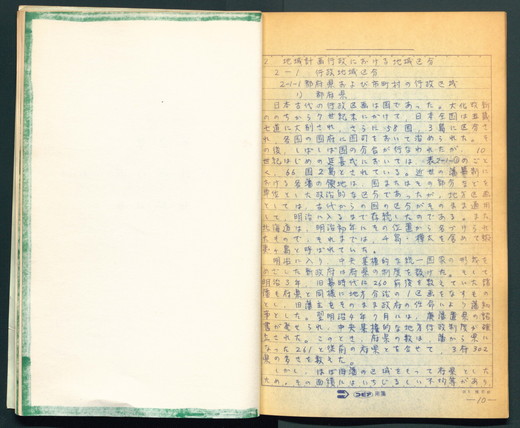 2 地域計画行政における地域区分
2-1 行政地域区分
2-1-1 都府県および市町村の行政区域
1) 都府県
日本古代の行政区画は国であった。大化改新
ののちから9世紀末にかけて、日本全国は五畿
七道に大別され、さらに58国、3島に区分さ
れ、各国の国府に国司をおいて治められた。そ
の後、しばしば国の分合が行なわれたが、10
世紀はじめの延喜式においては、表2-1-①のごと
く、66国2島とされている。近世の藩幕制に
おける各藩の領地は、国またはその部分などを
単位とした政治的な区分であったが、地方区画
としては、古代からの国の区分がそのまま通用
して、明治に入るまで存続したのである。また
北海道は、明治初年にその位置から名づけられ
たもので、それまでは、千島・樺太を含めて蝦
夷千島と呼ばれていた。
明治に入り、中央集権的な統一国家の形成を
めざした新政府は府県の制度を設けた。そして
明治3年、旧幕時代に260前後を数えていた諸
藩を府県と同様に地方自治の1区画をなすもの
とし、旧藩主をそのまま政府の任命による藩知
事とした。翌明治4年7月には、廃藩置県の詔
書が発せられ、中央集権的な地方行政制度が確
立された。このとき、府県の数は、藩から県に
なった261と従前の府県とを合せて、3府302
県の多きを数えた。
しかし、ほぼ旧藩の区域をもって府県とした
ため、その面積にはいちじるしい不均等があり
コピア 用箋
—10—